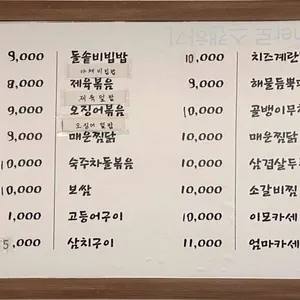 9,000 돌솥비빔밥 10,000 치즈계란
야채비빔밥
8,000 제육볶음 9,000 해물듬뿍
제육덮밥
9,000 오징어볶음 10,000 골뱅이무
오징어덮밥
9,000 매운찜닭 10,000 매운찜
10,000 숙주차돌볶음 10,000 삼겹살두
10,000 보쌈 10,000 소갈비찜
1,000 고등어구이 10,000 이모카세
5,000 삼치구이 11,000 엄마카세